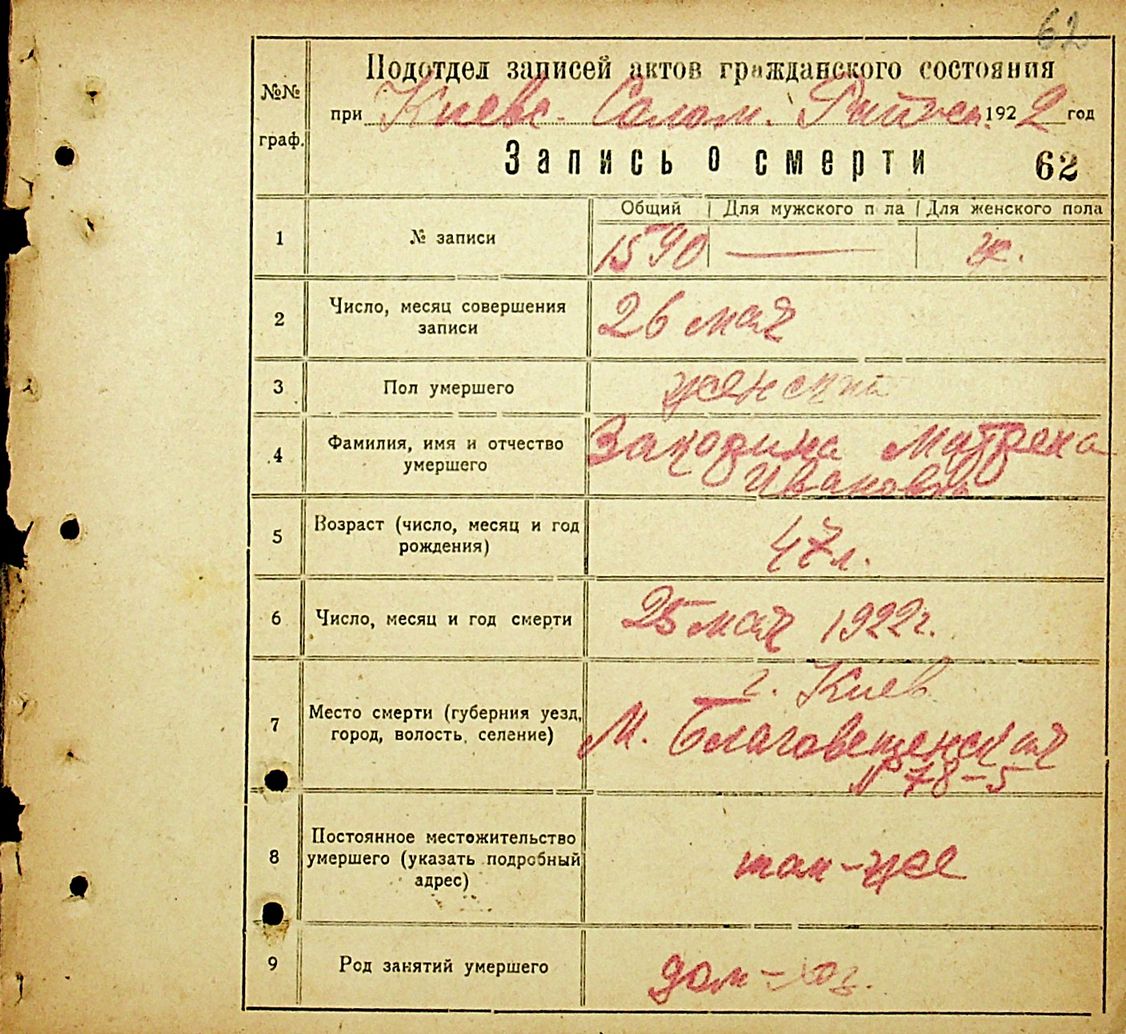 62
Подотдел записей актов гражданского состояния
№№ граф.
при Киевс. Солом. 1922 год
Запись о смерти 62
Общий Для мужского пола Для женского пола
1 № записи 1590 — ж.
2 Число, месяц совершения
записи
26 мая
3 Пол умершего женский
4 Фамилия, имя и отчество
умершего
Матрена
Ивановна
5 Возраст (число, месяц и год
рождения)
47 л.
6 Число, месяц и год смерти 25 мая 1922 г.
7 Место смерти (губерния уезд,
город, волость, селение)
г. Киев
М. Благовещенская
№ 78-5
8 Постоянное местожительство
умершего (указать подробный
адрес)
там-же
9 Род занятий умершего дом-хоз.